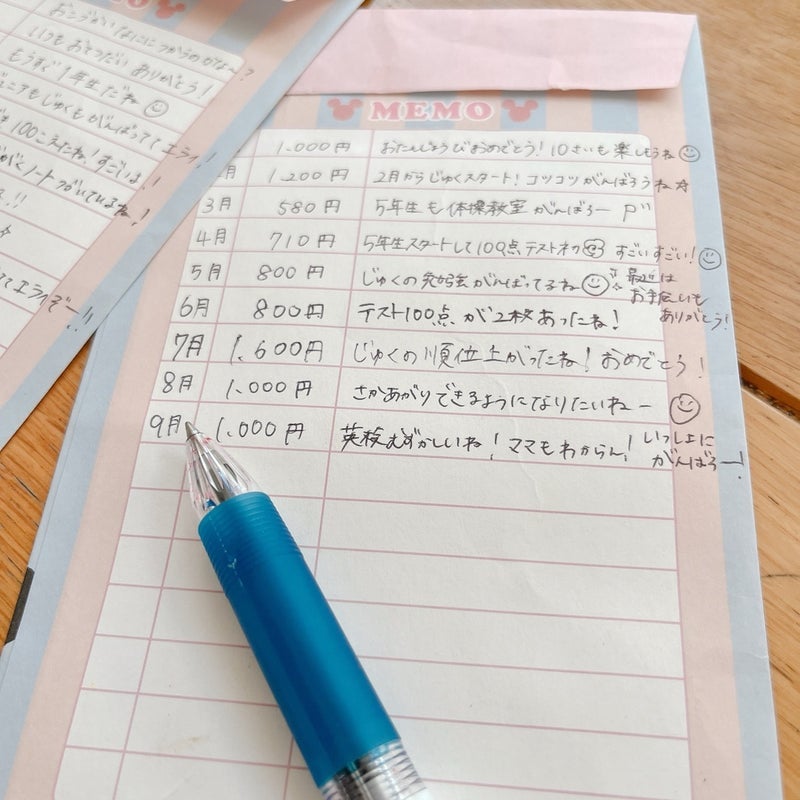 おこづかいなにに つかうのかな〜?
いつも おてつだい ありがとう!
もうすぐ1年生だね
ジュニアもじゅくも がんばってて エライ!
100こえたね!すごいよ!
ノート つかいているね!
エライぞー!!
MEMO
1,000円 おたんじょうびおめでとう! 10さいも 楽しもうね
月 1,200円 2月からじゅくスタート! コツコツ がんばろうね☆
3月 580円 5年生も 体操教室 がんばろー
4月 710円 5年生スタートして100点テスト すごいすごい!
5月 800円 じゅくの 勉強 がんばってるね 最近は
お手伝いも
ありがとう!
6月 800円 テスト100点が2枚あったね!
7月 1,600円 じゅくの順位上がったね! おめでとう!
8月 1,000円 さかあがりできるようになりたいねー
9月 1,000円 英検むずかしいね! ママもわからん! いっしょに
がんばろー!